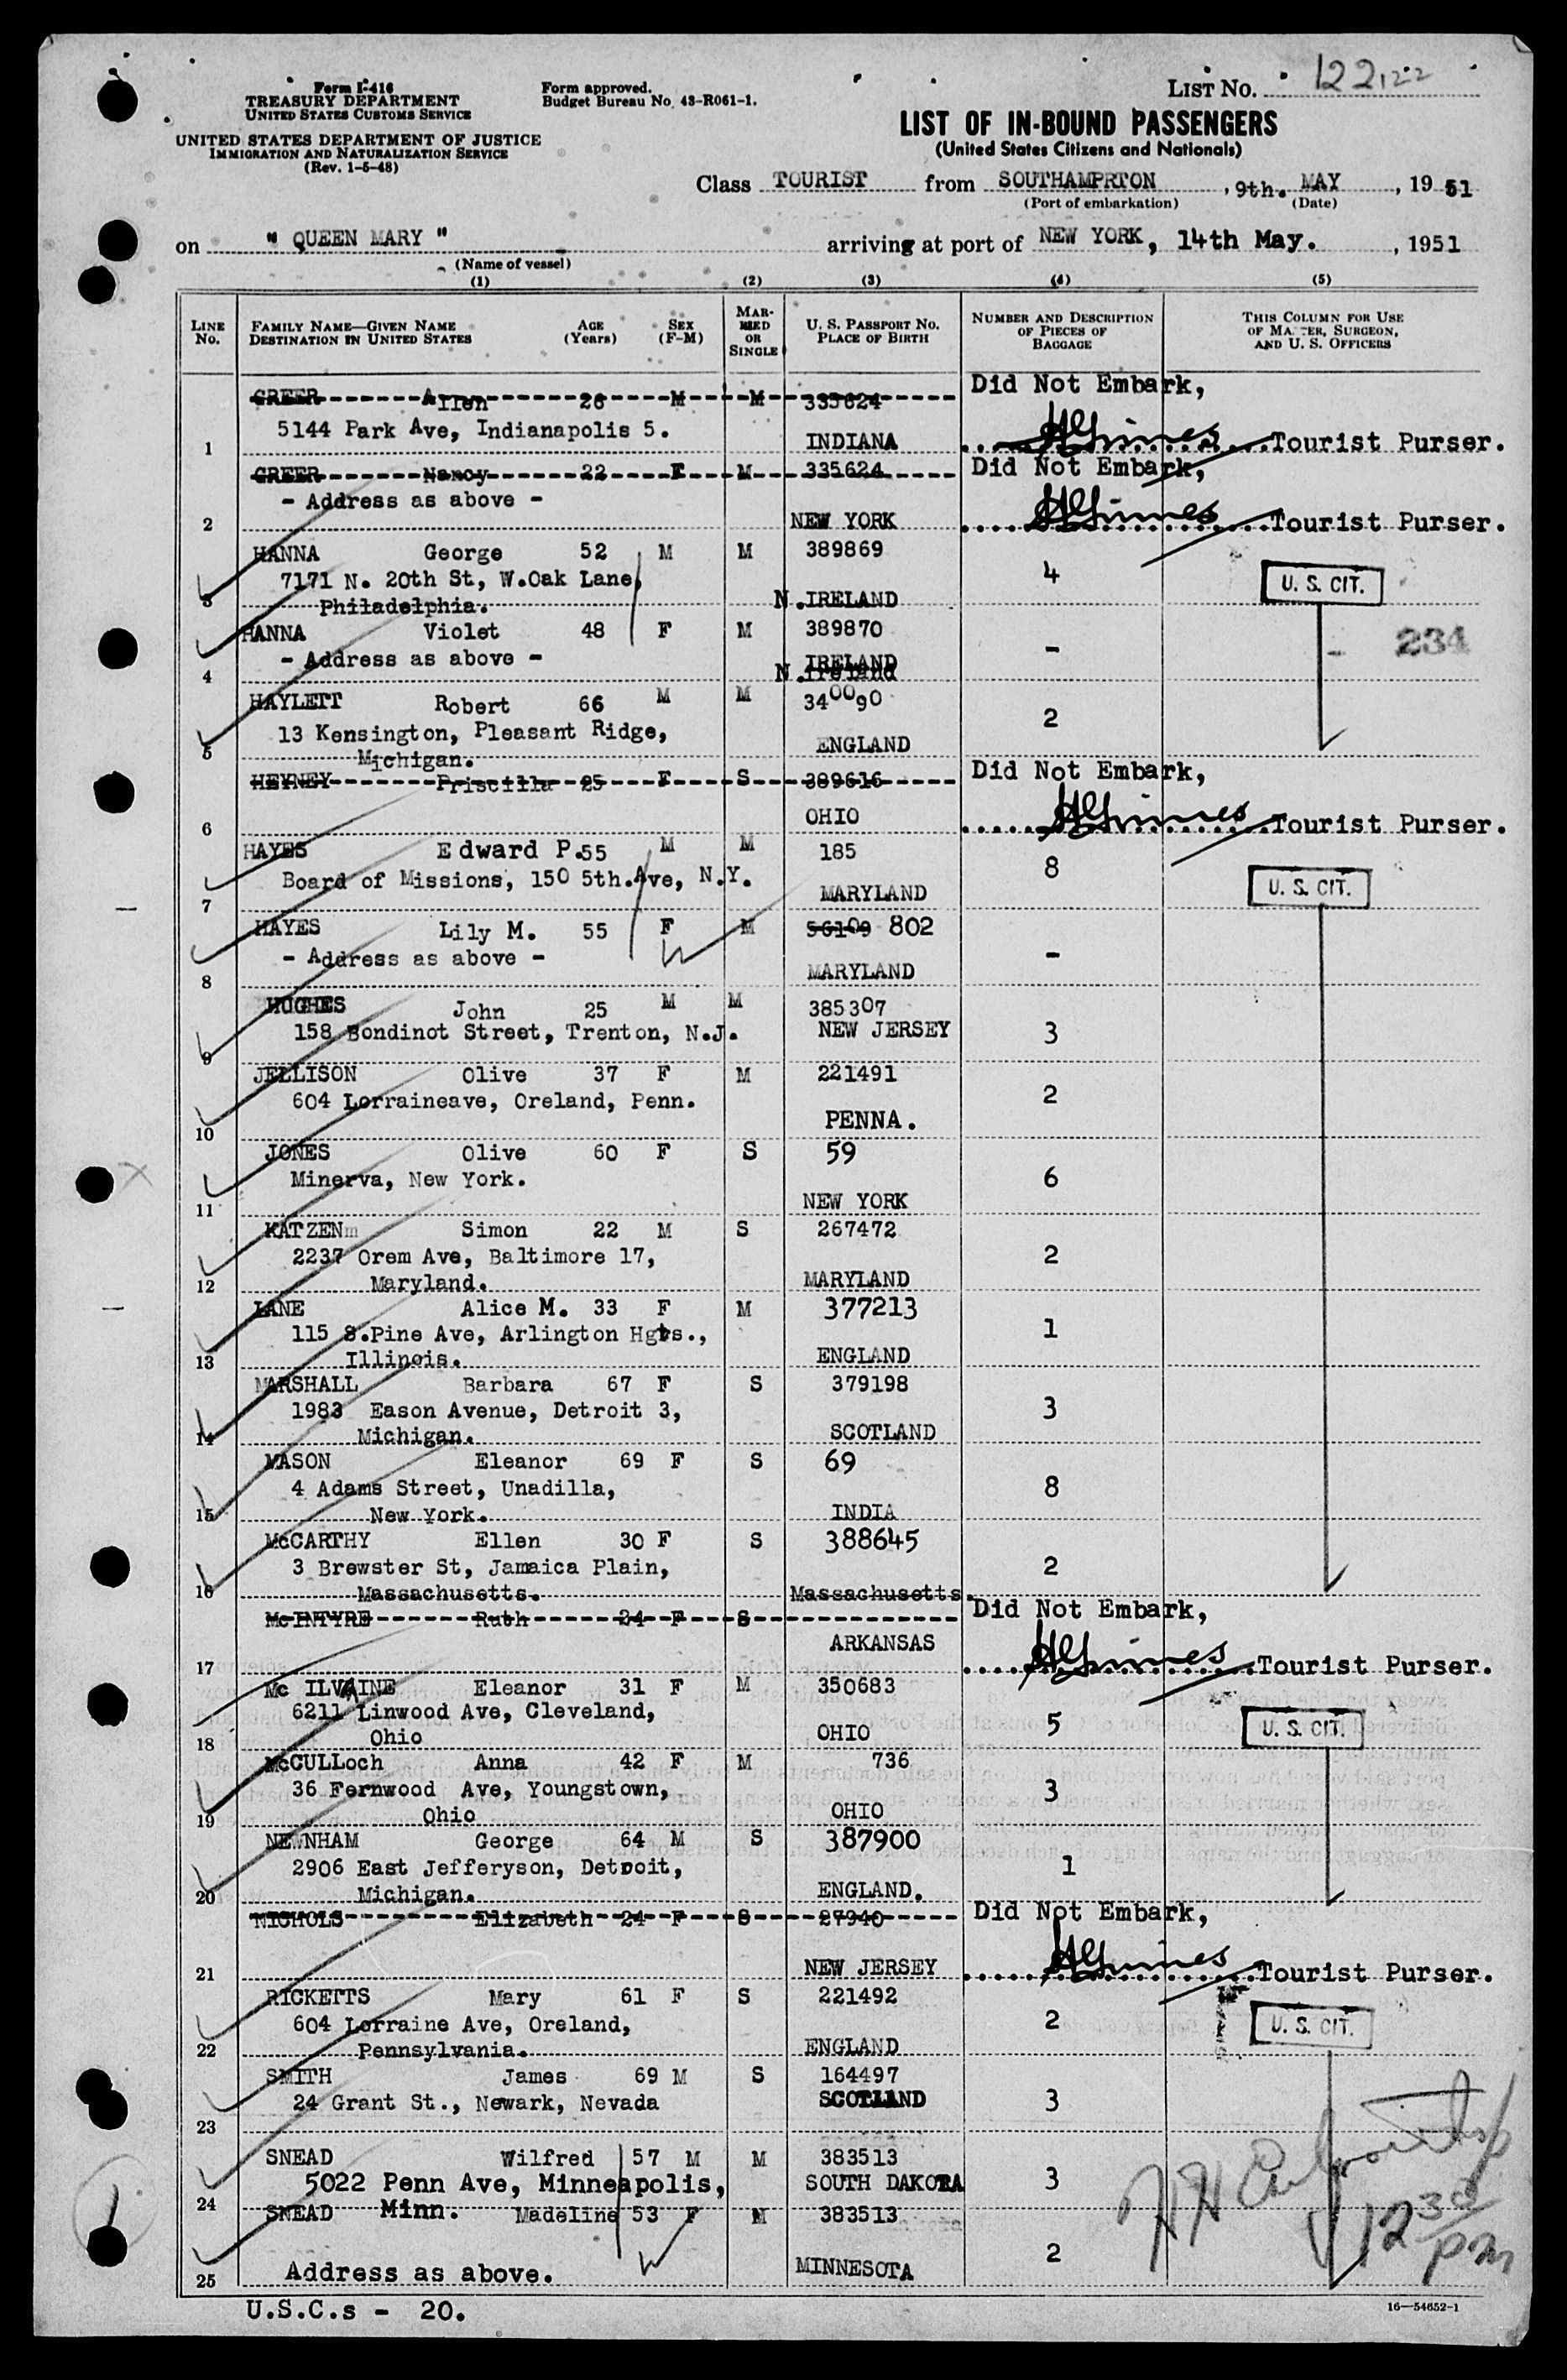 Form I-416
TREASURY DEPARTMENT
UNITED STATES CUSTOMS SERVICE
UNITED STATES DEPARTMENT OF JUSTICE
IMMIGRATION AND NATURALIZATION SERVICE
(Rev. 1-5-48)
Form approved.
Budget Bureau No. 43-R061-1.
LIST No. 122 122
LIST OF IN-BOUND PASSENGERS
(United States Citizens and Nationals)
Class TOURIST from SOUTHAMPRTON, 9th. MAY, 19 51
(Port of embarkation) (Date)
on " QUEEN MARY " arriving at port of NEW YORK, 14th May., 1951
(Name of vessel)
(1) (2) (3) (4) (5)
LINE No. FAMILY NAME—GIVEN NAME DESTINATION IN UNITED STATES AGE (Years) SEX (F-M) MARRIED OR SINGLE U. S. PASSPORT NO. PLACE OF BIRTH NUMBER AND DESCRIPTION OF PIECES OF BAGGAGE THIS COLUMN FOR USE OF MASTER, SURGEON, AND U. S. OFFICERS
GREER Allen 26 M M 335624 Did Not Embark,
5144 Park Ave, Indianapolis 5.
1 INDIANA Tourist Purser.
GREER Nancy 22 F M 335624 Did Not Embark,
- Address as above -
2 NEW YORK Tourist Purser.
HANNA George 52 M M 389869
7171 N. 20th St, W.Oak Lane, 4 U. S. CIT.
3 Philadelphia. N.IRELAND
HANNA Violet 48 F M 389870
- Address as above - - - 234
4 IRELAND
N.Ireland
HAYLETT Robert 66 M M 340090
13 Kensington, Pleasant Ridge, 2
5 Michigan. ENGLAND
HEYNEY Priscilla 25 F S 389616 Did Not Embark,
6 OHIO Tourist Purser.
HAYES Edward P. 55 M M 185
Board of Missions, 150 5th.Ave, N.Y. 8 U. S. CIT.
7 MARYLAND
HAYES Lily M. 55 F M 56109 802
- Address as above - -
8 MARYLAND
HUGHES John 25 M M 385307
158 Bondinot Street, Trenton, N.J. NEW JERSEY 3
9
JELLISON Olive 37 F M 221491
604 Lorraineave, Oreland, Penn. 2
10 PENNA.
JONES Olive 60 F S 59
Minerva, New York. 6
11 NEW YORK
KATZENm Simon 22 M S 267472
2237 Orem Ave, Baltimore 17, 2
12 Maryland. MARYLAND
LANE Alice M. 33 F M 377213
115 S.Pine Ave, Arlington Hgts., 1
13 Illinois. ENGLAND
MARSHALL Barbara 67 F S 379198
1983 Eason Avenue, Detroit 3, 3
14 Michigan. SCOTLAND
MASON Eleanor 69 F S 69
4 Adams Street, Unadilla, 8
15 New York. INDIA
McCARTHY Ellen 30 F S 388645
3 Brewster St, Jamaica Plain, 2
16 Massachusetts. Massachusetts.
McINTYRE Ruth 24 F S Did Not Embark,
ARKANSAS
17 Tourist Purser.
Mc ILVAINE Eleanor 31 F M 350683
6211 Linwood Ave, Cleveland, 5 U. S. CIT.
18 Ohio OHIO
McCULLoch Anna 42 F M 736
36 Fernwood Ave, Youngstown, 3
19 Ohio OHIO
NEWNHAM George 64 M S 387900
2906 East Jefferyson, Detroit, 1
20 Michigan. ENGLAND.
NICHOLS Elizabeth 24 F S 27940 Did Not Embark,
21 NEW JERSEY Tourist Purser.
RICKETTS Mary 61 F S 221492
604 Lorraine Ave, Oreland, 2 U. S. CIT.
22 Pennsylvania. ENGLAND
SMITH James 69 M S 164497
24 Grant St., Newark, Nevada SCOTLAND 3
23
SNEAD Wilfred 57 M M 383513
5022 Penn Ave, Minneapolis, SOUTH DAKOTA 3
24 Minn.
SNEAD Madeline 53 F M 383513
12 30 pm
2
25 Address as above. MINNESOTA
U.S.C.s - 20.
16—54652-1